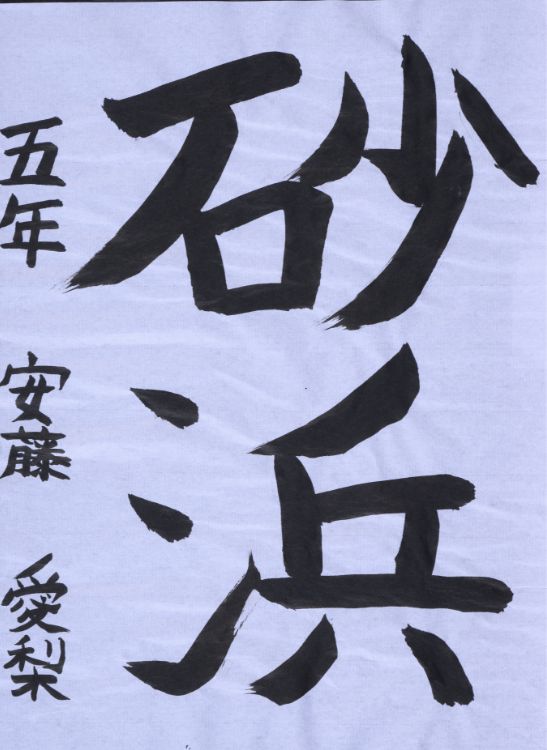 砂浜
五年 安藤 愛梨